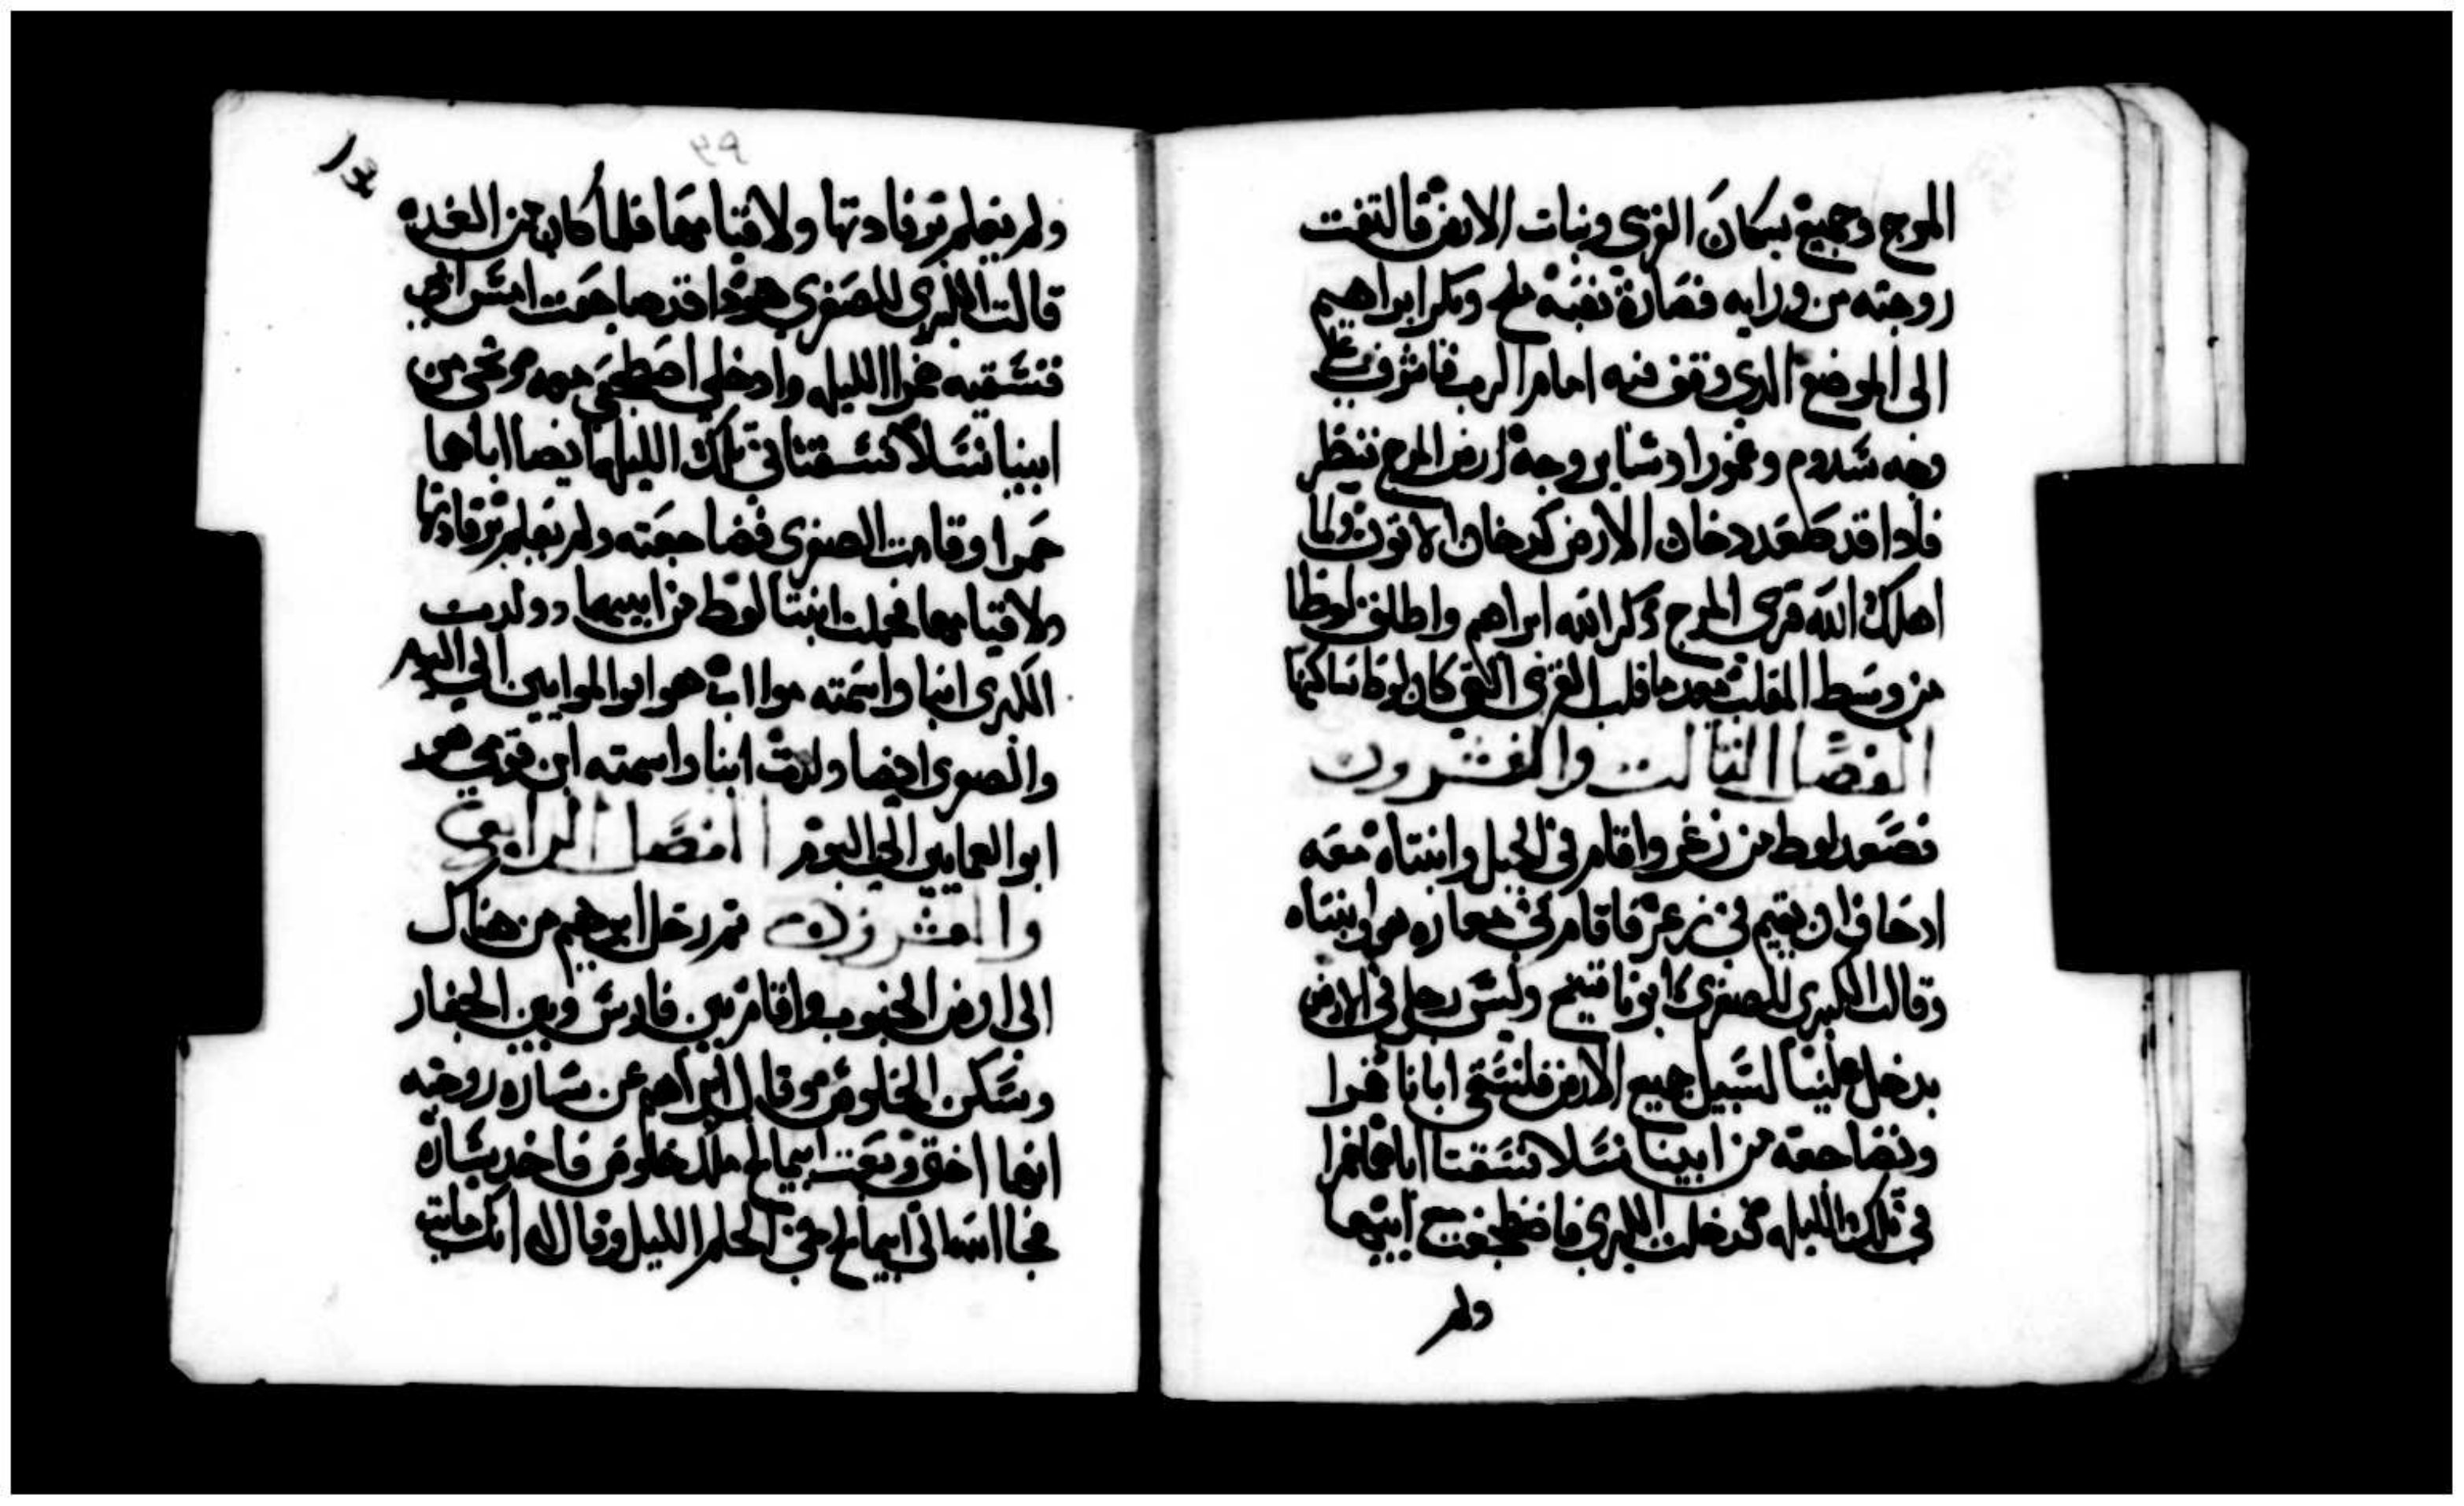 المرج وجميع سكان القري ونبات الارض فالتفت
زوجته من ورايه فصارة نصبة ملح وبكر ابراهيم
الى الموضع الدي وقف فيه امام الرب فاشرف على
وجه سدوم وعمورا وساير وجه ارض المرج تنظر
فادا قد صعد دخان الارض كدخان الاتون ولما
اهلك الله قري المرج دكر الله ابراهيم واطلق لوطا
من وسط المقلب بعد ما قلب القرى التي كان لوط ساكنها
الفصل التالت والعشرون
فصعد لوط من زغر واقام في الجبل وابنتاه معه
ادخاف ان يقيم في زغر فاقام في مغاره هو وابنتاه
وقالت الكبري للصغري ابونا شيخ وليس رجل في الارض
يدخل علينا لسبيل جميع الارض فلنسقي ابانا خمرا
ونضاجعه من ابينا نسلا فسقتا اباهما خمرا
في تلك الليله تم دخلت الكبري فاضطجعت مع ابيها
ولم
ولم يعلم برقادتها ولا قيامها فلما كان من الغده
قالت الكبري للصغري هودا قد ضاجعت امس ابي
فنسقيه خمرا الليله وادخلي اضطجعي معه ونحي من
ابينا نسلا فسقتا في تلك الليله ايضا اباهما
خمرا وقامت الصغري فضاجعته ولم يعلم برقادتها
ولا قيامها فحملت ابنتا لوط من ابيهما وولدت
الكبرى ابنا واسمته مواب هو ابو الموابيين الي اليوم
والصغرى ايضا ولدت ابنا واسمته ابن قومي هو
ابو العمانيين الي اليوم الفصل الرابع
والعشرون تم رحل ابرهيم من هناك
الى ارض الجنوب واقام بين قادس وبين الجفار
وسكن الخلوص وقال ابراهم عن ساره زوجته
انها اختي وبعت ابيمالخ ملك خلوص فاخد سارة
فجا الله الى ابيمالخ في الحلم الليل وقال له انك مايت